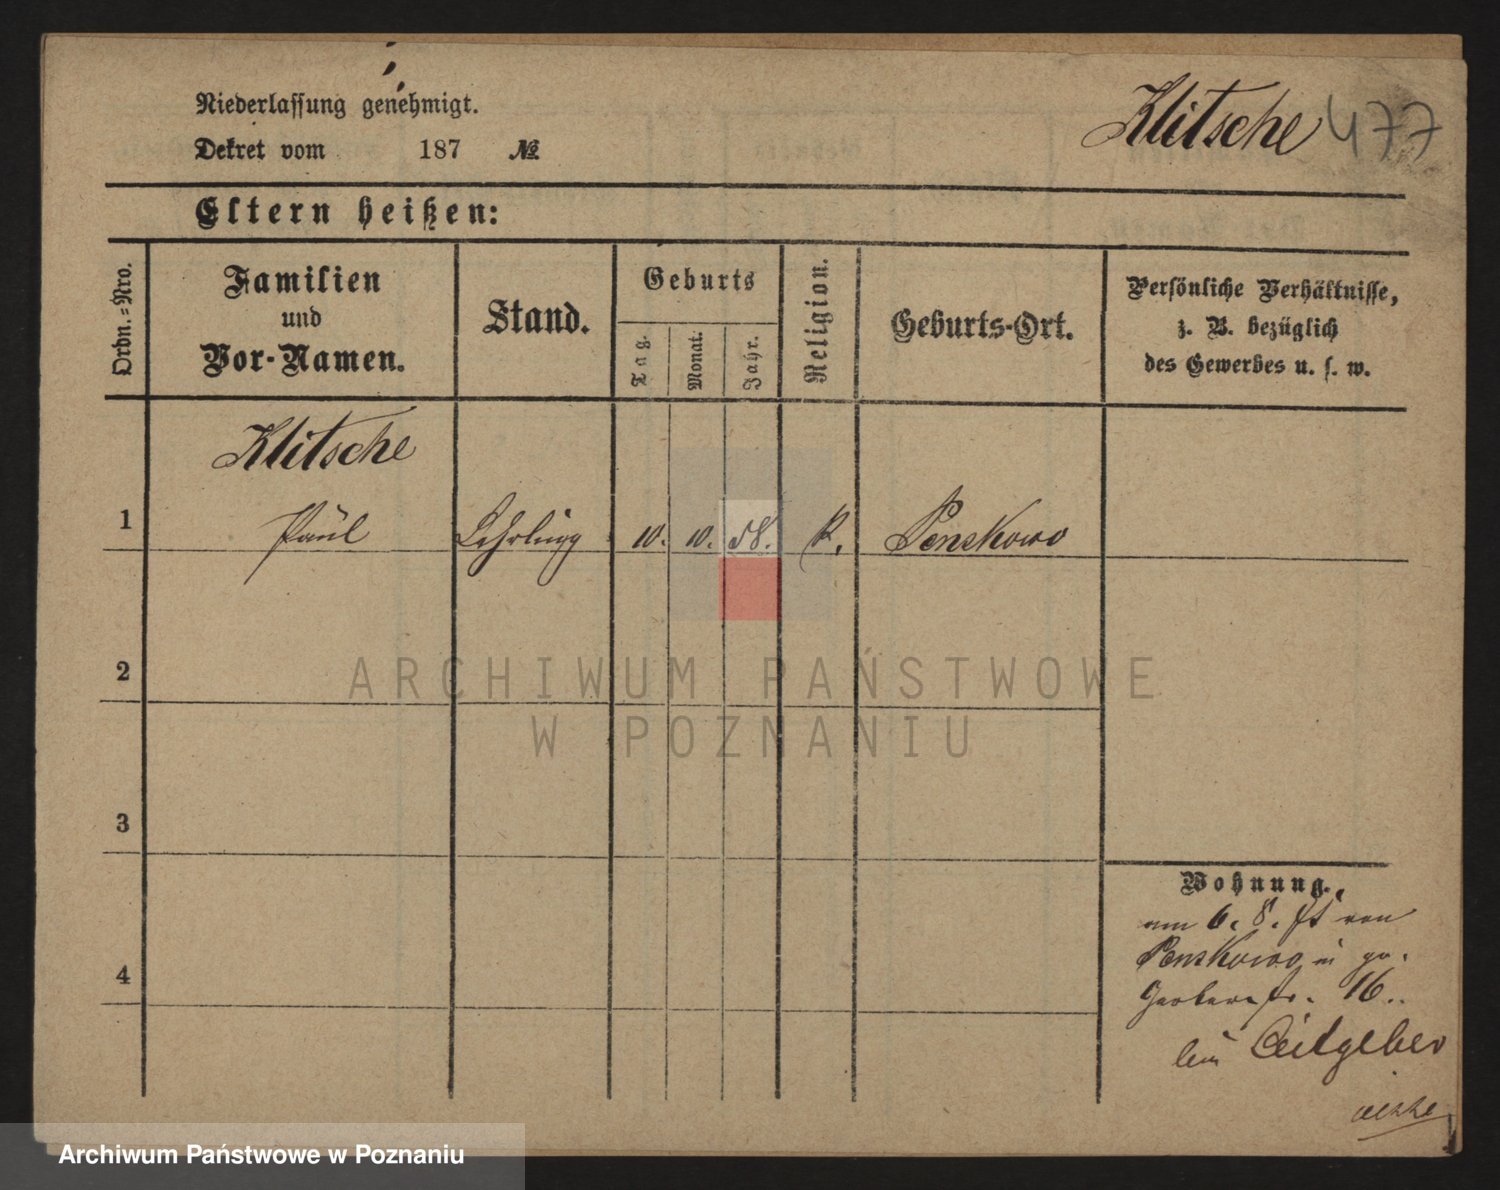 Niederlassung genehmigt.
Klitsche 477
Dekret vom 187 №
Eltern heißen:
Ordn.-Nro.
Familien
und
Vor-Namen.
Stand.
Geburts
Tag.
Monat.
Jahr.
Religion.
Geburts-Ort.
Persönliche Verhältnisse,
z. B. bezüglich
des Gewerbes u. s. w.
Klitsche
1 Paul Lehrling 10. 10. 58. K. Penskowo
2
3
4
Wohnung.
am 6. 8. von
Penskowo in gr.
Gerberstr. 16..
bei Ceitgeber
ARCHIWUM PAŃSTWOWE
W POZNANIU
Archiwum Państwowe w Poznaniu